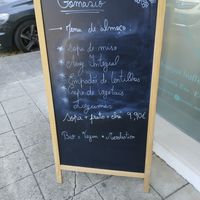 Gomásio
Menu de almoço:
* Sopa de miso
* Arroz Integral
* Empadão de lentilhas
* Creme de vegetais
Legumes
Sopa + prato + chá 9,90€
Bio • Vegan • Macrobiótica